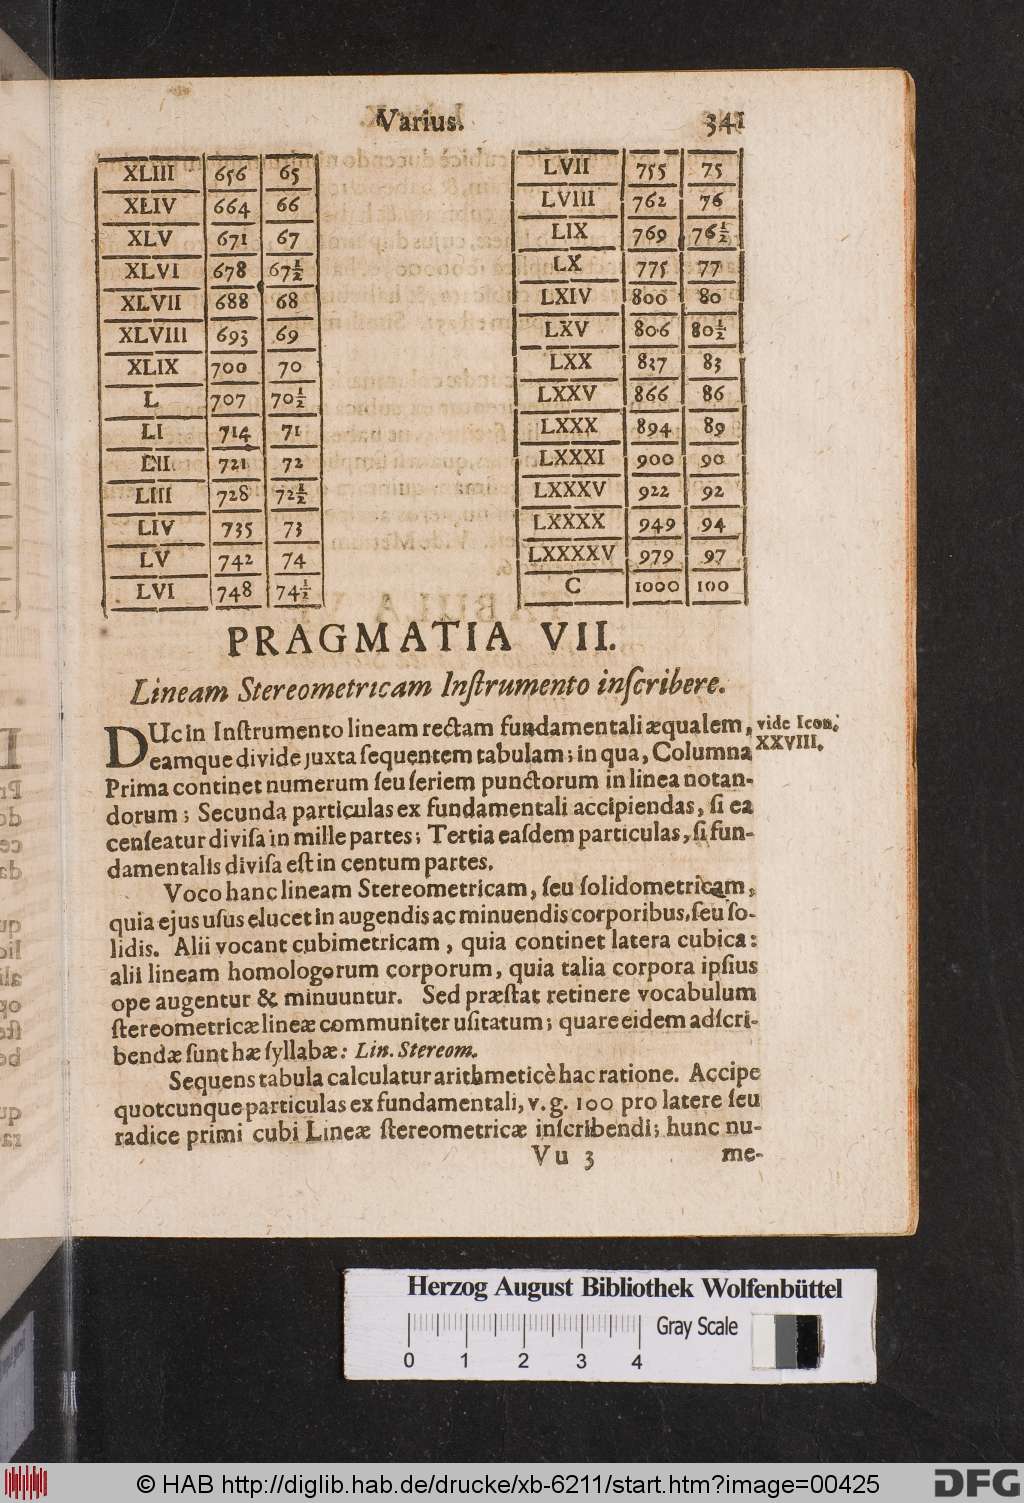 Varius. 341
XLIII 656 65
XLIV 664 66
XLV 671 67
XLVI 678 67½
XLVII 688 68
XLVIII 693 69
XLIX 700 70
L 707 70½
LI 714 71
LII 721 72
LIII 728 72½
LIV 735 73
LV 742 74
LVI 748 74½
LVII 755 75
LVIII 762 76
LIX 769 76½
LX 775 77
LXIV 800 80
LXV 806 80½
LXX 837 83
LXXV 866 86
LXXX 894 89
LXXXI 900 90
LXXXV 922 92
LXXXX 949 94
LXXXXV 979 97
C 1000 100
PRAGMATIA VII.
Lineam Stereometricam Inſtrumento inſcribere.
DUc in Inſtrumento lineam rectam fundamentali æqualem, vide Icon.
eamque divide juxta ſequentem tabulam; in qua, Columna XXVIII.
Prima continet numerum ſeu ſeriem punctorum in linea notan-
dorum; Secunda particulas ex fundamentali accipiendas, ſi ea
cenſeatur diviſa in mille partes; Tertia eaſdem particulas, ſi fun-
damentalis diviſa eſt in centum partes.
Voco hanc lineam Stereometricam, ſeu ſolidometricam,
quia ejus uſus elucet in augendis ac minuendis corporibus, ſeu ſo-
lidis. Alii vocant cubimetricam, quia continet latera cubica:
alii lineam homologorum corporum, quia talia corpora ipſius
ope augentur & minuuntur. Sed præſtat retinere vocabulum
ſtereometricæ lineæ communiter uſitatum; quare eidem adſcri-
bendæ ſunt hæ ſyllabæ: Lin. Stereom.
Sequens tabula calculatur arithmeticè hac ratione. Accipe
quotcunque particulas ex fundamentali, v. g. 100 pro latere ſeu
radice primi cubi Lineæ ſtereometricæ inſcribendi; hunc nu-
Vu 3 me-
Herzog August Bibliothek Wolfenbüttel
Gray Scale
0 1 2 3 4
© HAB http://diglib.hab.de/drucke/xb-6211/start.htm?image=00425
DFG